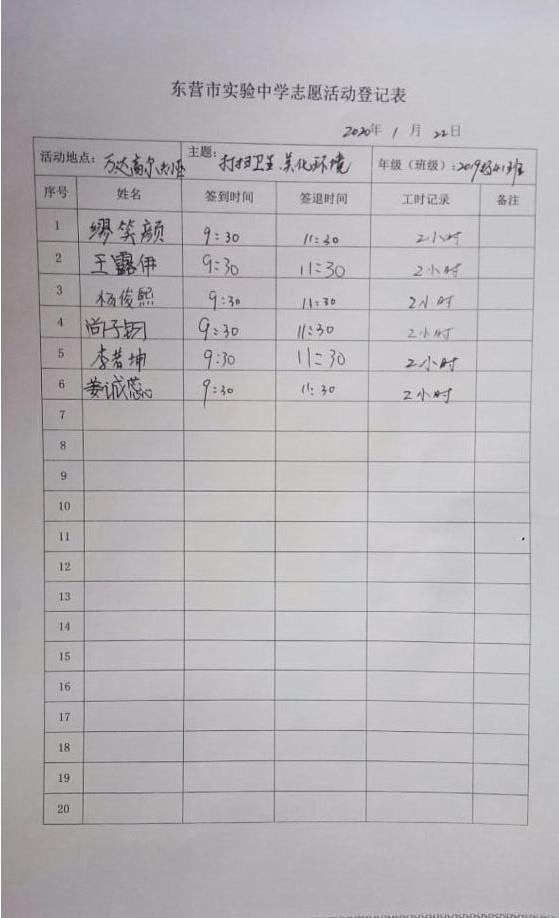 东营市实验中学志愿活动登记表
2020年 1 月 22日
活动地点：万达高尔夫 主题：打扫卫生、美化环境 年级（班级）：2019级41班
序号 姓名 签到时间 签退时间 工时记录 备注
1 缪笑颜 9:30 11:30 2小时
2 王露伊 9:30 11:30 2小时
3 杨俊熙 9:30 11:30 2小时
4 尚子钥 9:30 11:30 2小时
5 李若坤 9:30 11:30 2小时
6 姜诚蕊 9:30 11:30 2小时
7
8
9
10
11
12
13
14
15
16
17
18
19
20